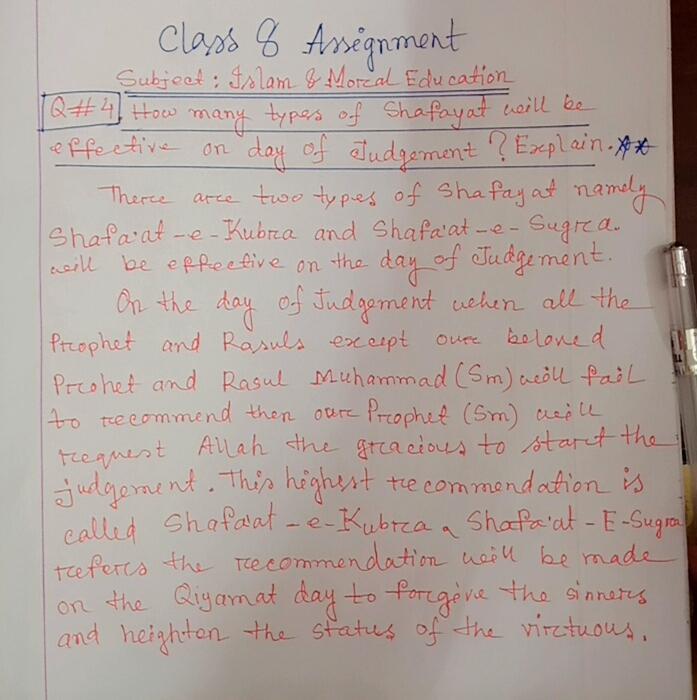 Class 8 Assignment
Subject : Islam & Moral Education
Q#4 How many types of Shafayat will be
effective on day of Judgement ? Explain.**
There are two types of Shafayat namely
Shafa'at-e-Kubra and Shafa'at-e-Sugra.
will be effective on the day of Judgement.
On the day of Judgement when all the
Prophet and Rasuls except our beloved
Prcohet and Rasul Muhammad (Sm) will fail
to recommend then our Prophet (Sm) will
request Allah the gracious to start the
judgement. This highest recommendation is
called Shafa'at-e-Kubra. Shafa'at-E-Sugra
refers the recommendation will be made
on the Qiyamat day to forgive the sinners
and heighten the status of the virtuous.